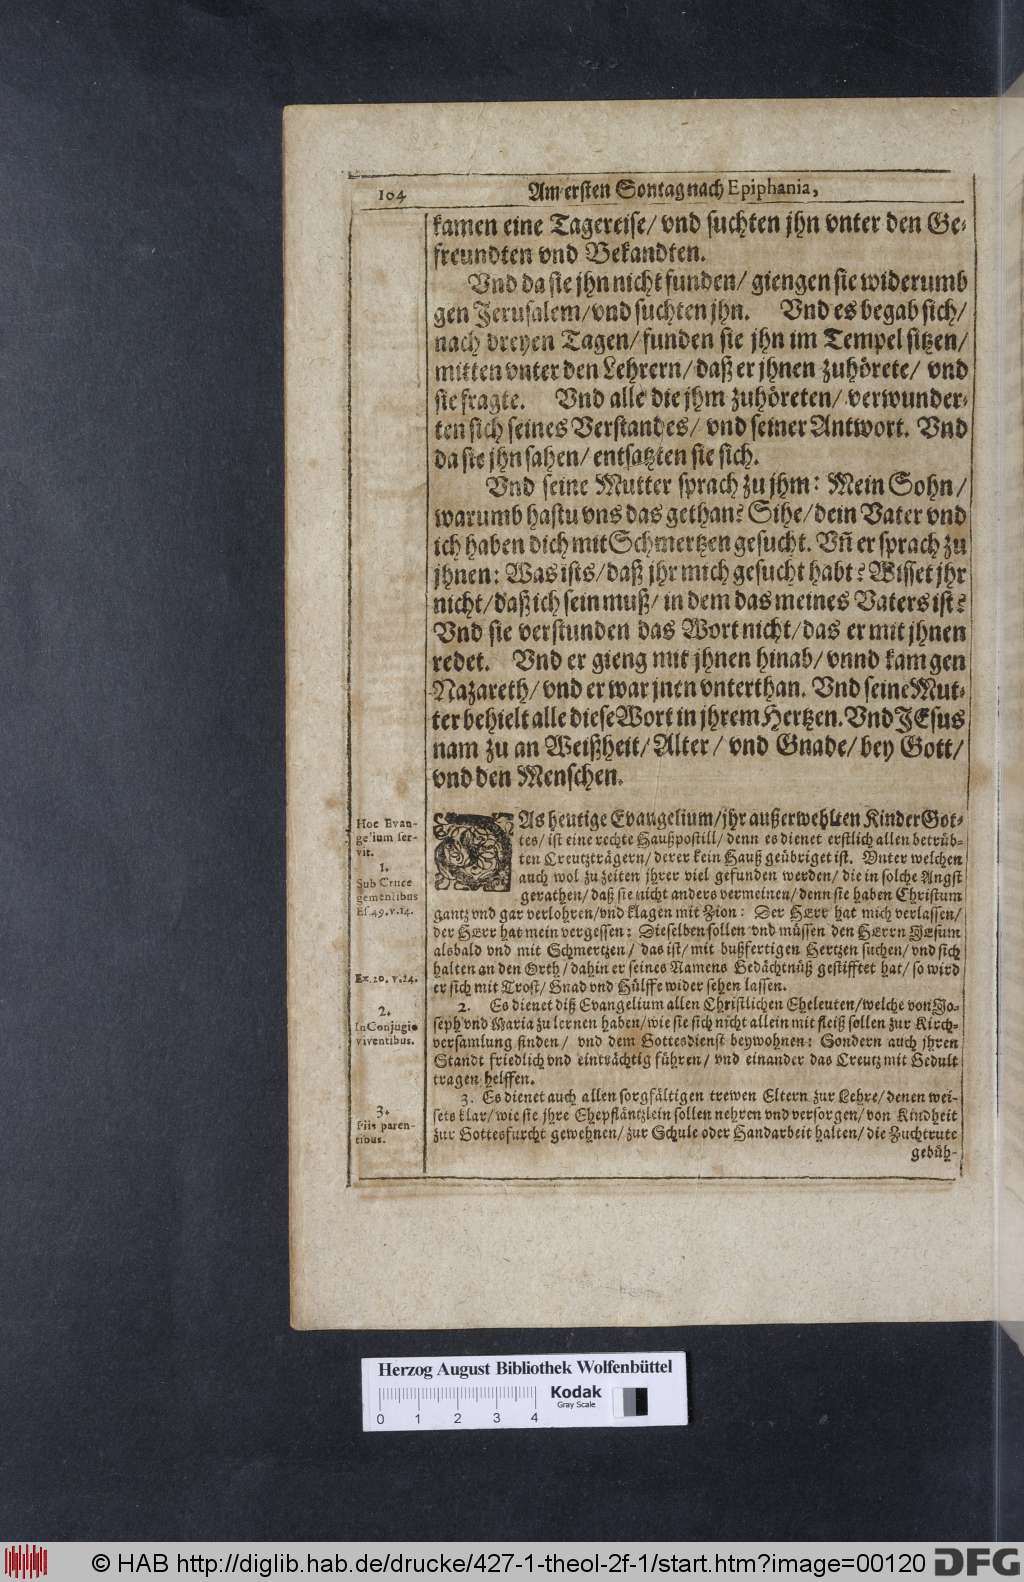 104
Am ersten Sontag nach Epiphania,
kamen eine Tagereise/ vnd suchten jhn vnter den Ge-
freundten vnd Bekandten.
Vnd da sie jhn nicht funden/ giengen sie widerumb
gen Jerusalem/ vnd suchten jhn. Vnd es begab sich/
nach dreyen Tagen/ funden sie jhn im Tempel sitzen/
mitten vnter den Lehrern/ daß er jhnen zuhörete/ vnd
sie fragte. Vnd alle die jhm zuhöreten/ verwunder-
ten sich seines Verstandes/ vnd seiner Antwort. Vnd
da sie jhn sahen/ entsatzten sie sich.
Vnd seine Mutter sprach zu jhm: Mein Sohn/
warumb hastu vns das gethan? Sihe/ dein Vater vnd
ich haben dich mit Schmertzen gesucht. Vñ er sprach zu
jhnen: Was ists/ daß jhr mich gesucht habt? Wisset jhr
nicht/ daß ich sein muß/ in dem das meines Vaters ist?
Vnd sie verstunden das Wort nicht/ das er mit jhnen
redet. Vnd er gieng mit jhnen hinab/ vnnd kam gen
Nazareth/ vnd er war jnen vnterthan. Vnd seine Mut-
ter behielt alle diese Wort in jhrem Hertzen. Vnd JEsus
nam zu an Weißheit/ Alter/ vnd Gnade/ bey Gott/
vnd den Menschen.
Hoc Evan-
gelium ser-
vit.
1.
Sub Cruce
gementibus
Es. 49. v. 14.
Ex. 20. v. 24.
2.
In Conjugio
viventibus.
3.
Piis paren-
tibus.
DAs heutige Evangelium/ jhr außerwehlten Kinder Got-
tes/ ist eine rechte Haußpostill/ denn es dienet erstlich allen betrüb-
ten Creutzträgern/ derer kein Hauß geübriget ist. Vnter welchen
auch wol zu zeiten jhrer viel gefunden werden/ die in solche Angst
gerathen/ daß sie nicht anders vermeinen/ denn sie haben Christum
gantz vnd gar verlohren/ vnd klagen mit Zion: Der HErr hat mich verlassen/
der HErr hat mein vergessen: Dieselben sollen vnd müssen den HErrn JEsum
alsbald vnd mit Schmertzen/ das ist/ mit bußfertigen Hertzen suchen/ vnd sich
halten an den Orth/ dahin er seines Namens Gedächtnüß gestifftet hat/ so wird
er sich mit Trost/ Gnad vnd Hülffe wider sehen lassen.
2. Es dienet diß Evangelium allen Christlichen Eheleuten/ welche von Jo-
seph vnd Maria zu lernen haben/ wie sie sich nicht allein mit fleiß sollen zur Kirch-
versamlung finden/ vnd dem Gottesdienst beywohnen: Sondern auch jhren
Standt friedlich vnd einträchtig führen/ vnd einander das Creutz mit Gedult
tragen helffen.
3. Es dienet auch allen sorgfältigen trewen Eltern zur Lehre/ denen wei-
sets klar/ wie sie jhre Ehepfläntzlein sollen nehren vnd versorgen/ von Kindheit
zur Gottesfurcht gewehnen/ zur Schule oder Handarbeit halten/ die Zuchtrute
gebüh-
Herzog August Bibliothek Wolfenbüttel
Kodak
Gray Scale
0 1 2 3 4
© HAB http://diglib.hab.de/drucke/427-1-theol-2f-1/start.htm?image=00120
DFG